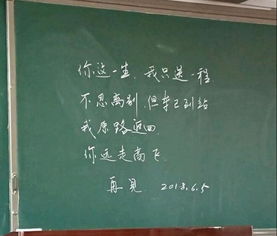 你这一生,我只送一程
不忍离别,但车已到站
我原路返回
你远走高飞.
再见 2018.6.5